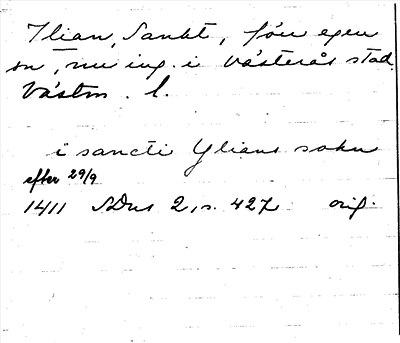 Ilian, Sankt, förr egen
sn, nu ing. i Västerås stad.
Västm. l.
i sancti Ylians sokn
efter 29/9
1411 SDns 2, s. 427 orig.